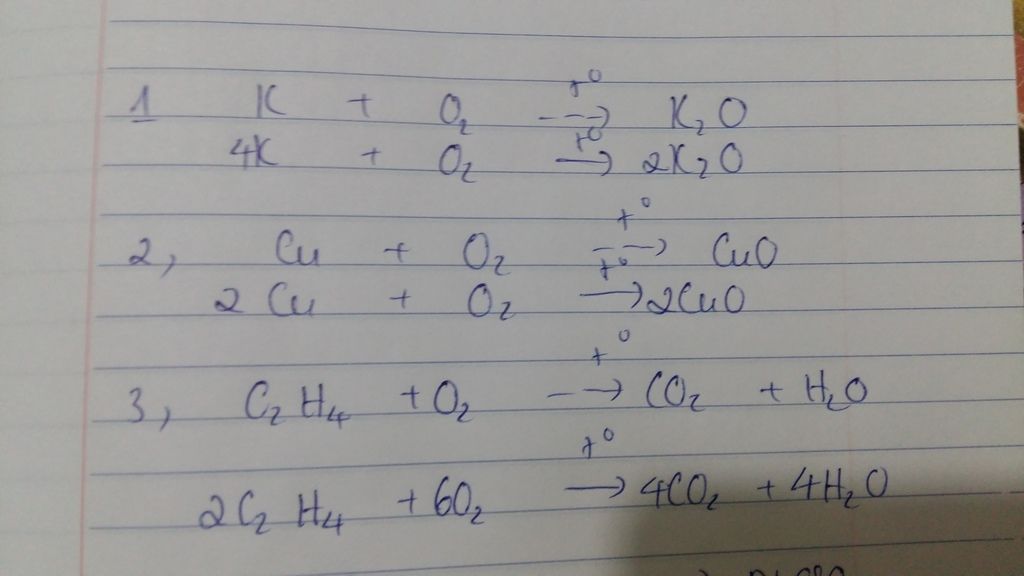 1 K + O₂ --t°--> K₂O
4K + O₂ --t°→ 2K₂O
2, Cu + O₂ --t°--> CuO
2Cu + O₂ --t°→ 2CuO
3, C₂H₄ + O₂ --t°--> CO₂ + H₂O
2C₂H₄ + 6O₂ --t°→ 4CO₂ + 4H₂O